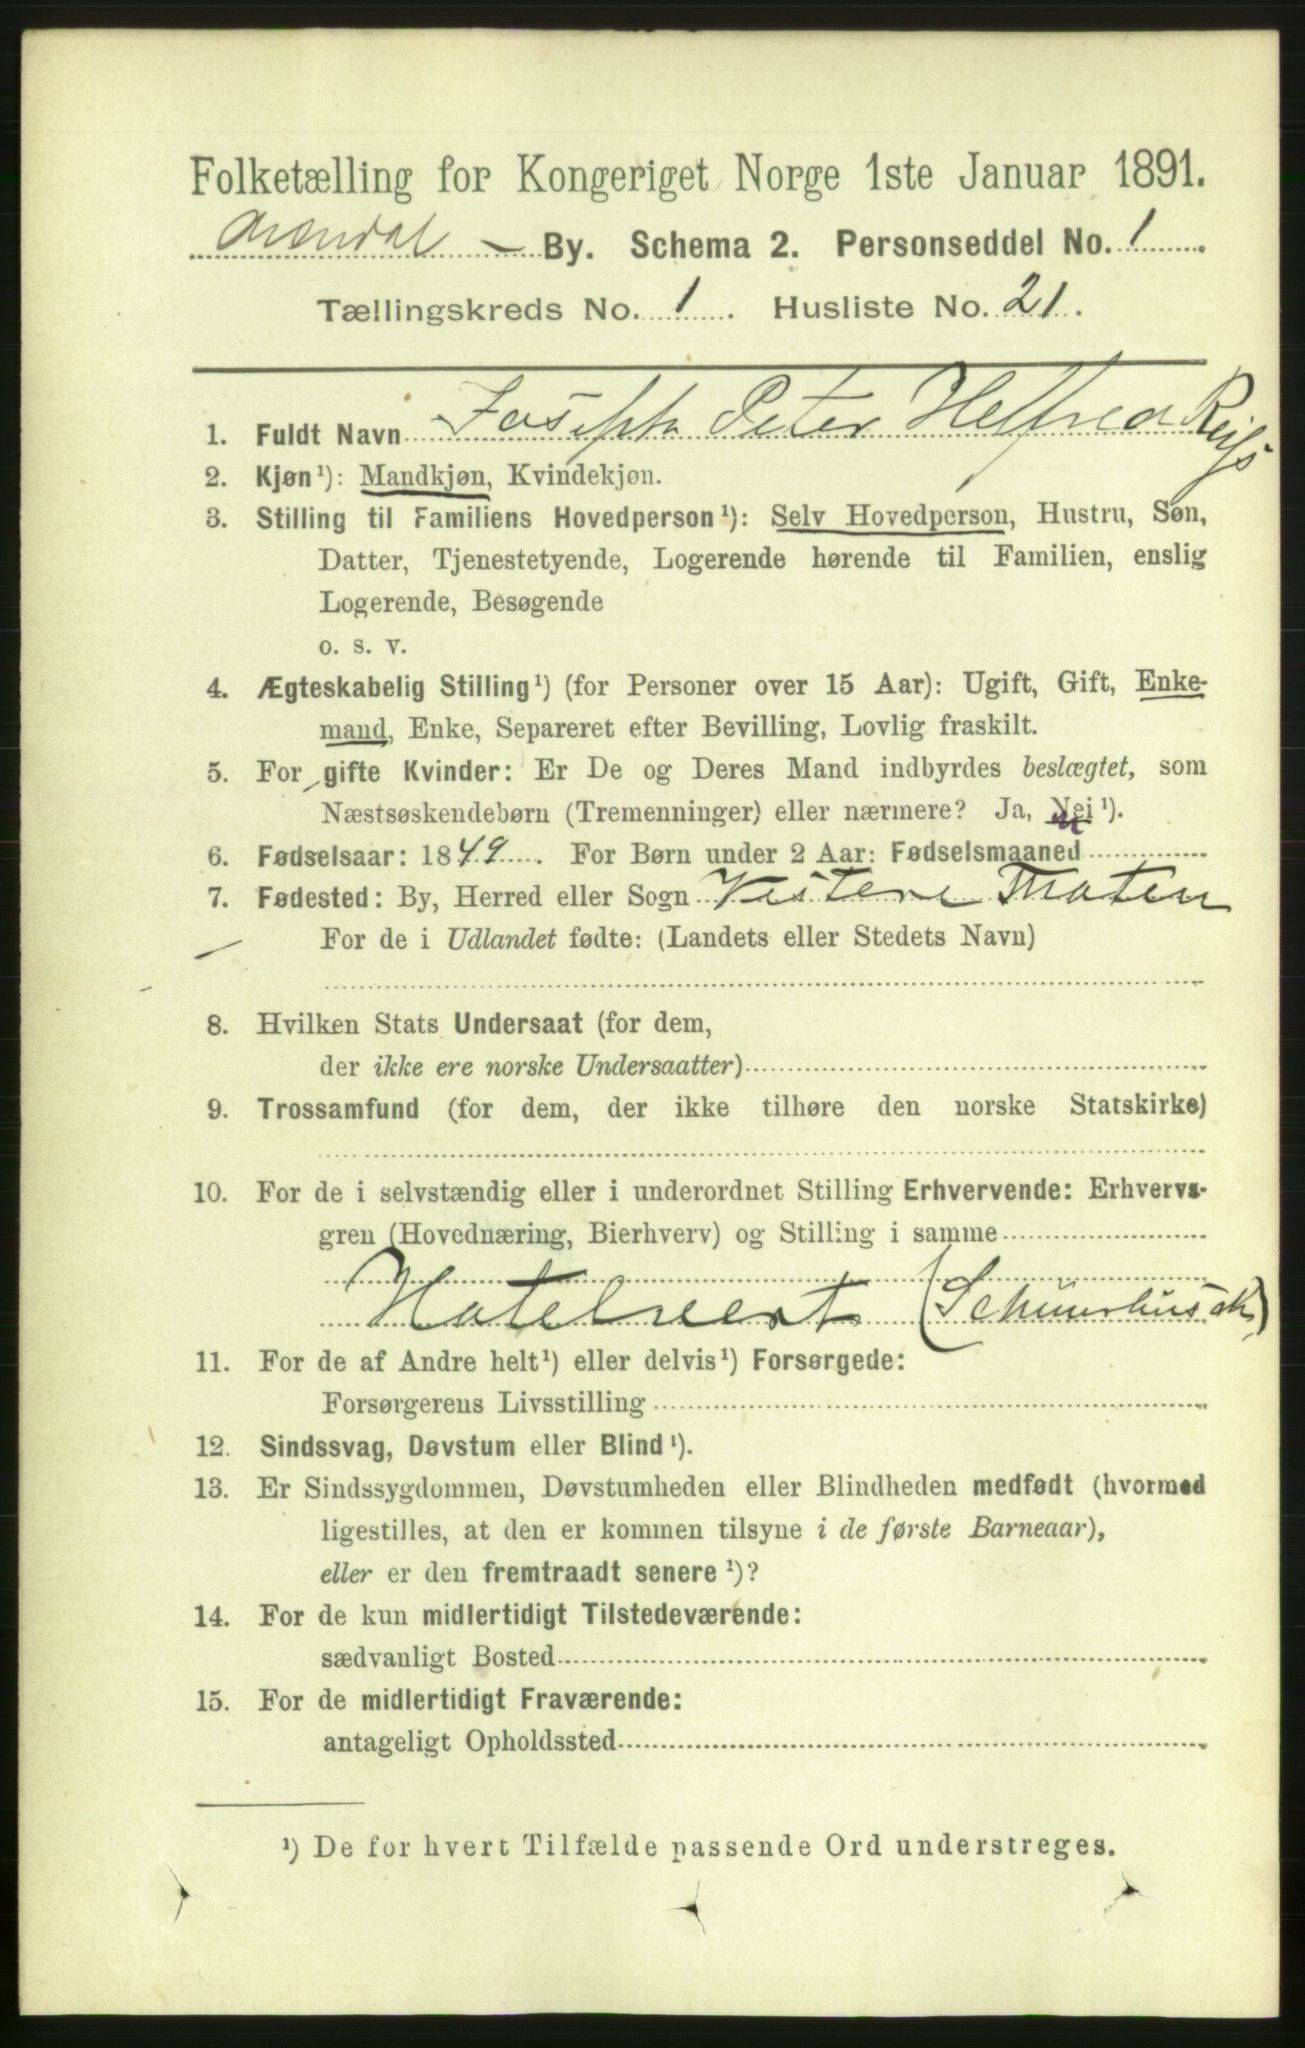 Folketælling for Kongeriget Norge 1ste Januar 1891.
Arendal By. Schema 2. Personseddel No. 1
Tællingskreds No. 1. Husliste No. 21.
1. Fuldt Navn Joseph Peter Helfred
2. Kjøn¹): Mandkjøn, Kvindekjøn.
3. Stilling til Familiens Hovedperson¹): Selv Hovedperson, Hustru, Søn,
Datter, Tjenestetyende, Logerende hørende til Familien, enslig
Logerende, Besøgende
o. s. v.
4. Ægteskabelig Stilling¹) (for Personer over 15 Aar): Ugift, Gift, Enke-
mand, Enke, Separeret efter Bevilling, Lovlig fraskilt.
5. For gifte Kvinder: Er De og Deres Mand indbyrdes beslægtet, som
Næstsøskendebørn (Tremenninger) eller nærmere? Ja, Nei¹).
6. Fødselsaar: 1849. For Børn under 2 Aar: Fødselsmaaned
7. Fødested: By, Herred eller Sogn Vestere Thoten
For de i Udlandet fødte: (Landets eller Stedets Navn)
8. Hvilken Stats Undersaat (for dem,
der ikke ere norske Undersaatter)
9. Trossamfund (for dem, der ikke tilhøre den norske Statskirke)
10. For de i selvstændig eller i underordnet Stilling Erhvervende: Erhvervs-
gren (Hovednæring, Bierhverv) og Stilling i samme
Hotelvert
11. For de af Andre helt¹) eller delvis¹) Forsørgede:
Forsørgerens Livsstilling
12. Sindssvag, Døvstum eller Blind¹).
13. Er Sindssygdommen, Døvstumheden eller Blindheden medfødt (hvormed
ligestilles, at den er kommen tilsyne i de første Barneaar),
eller er den fremtraadt senere¹)?
14. For de kun midlertidigt Tilstedeværende:
sædvanligt Bosted
15. For de midlertidigt Fraværende:
antageligt Opholdssted
¹) De for hvert Tilfælde passende Ord understreges.